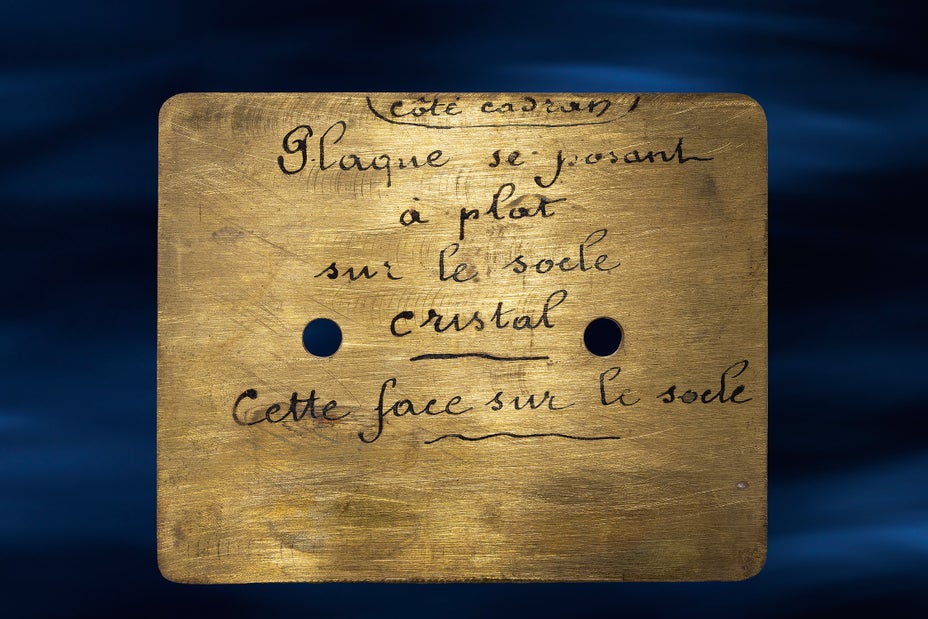 côté cadran
Plaque se posant
à plat
sur le socle
cristal
Cette face sur le socle